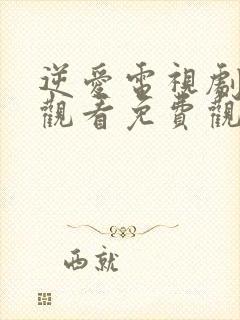 逆愛電視劇
觀看免費觀
西就